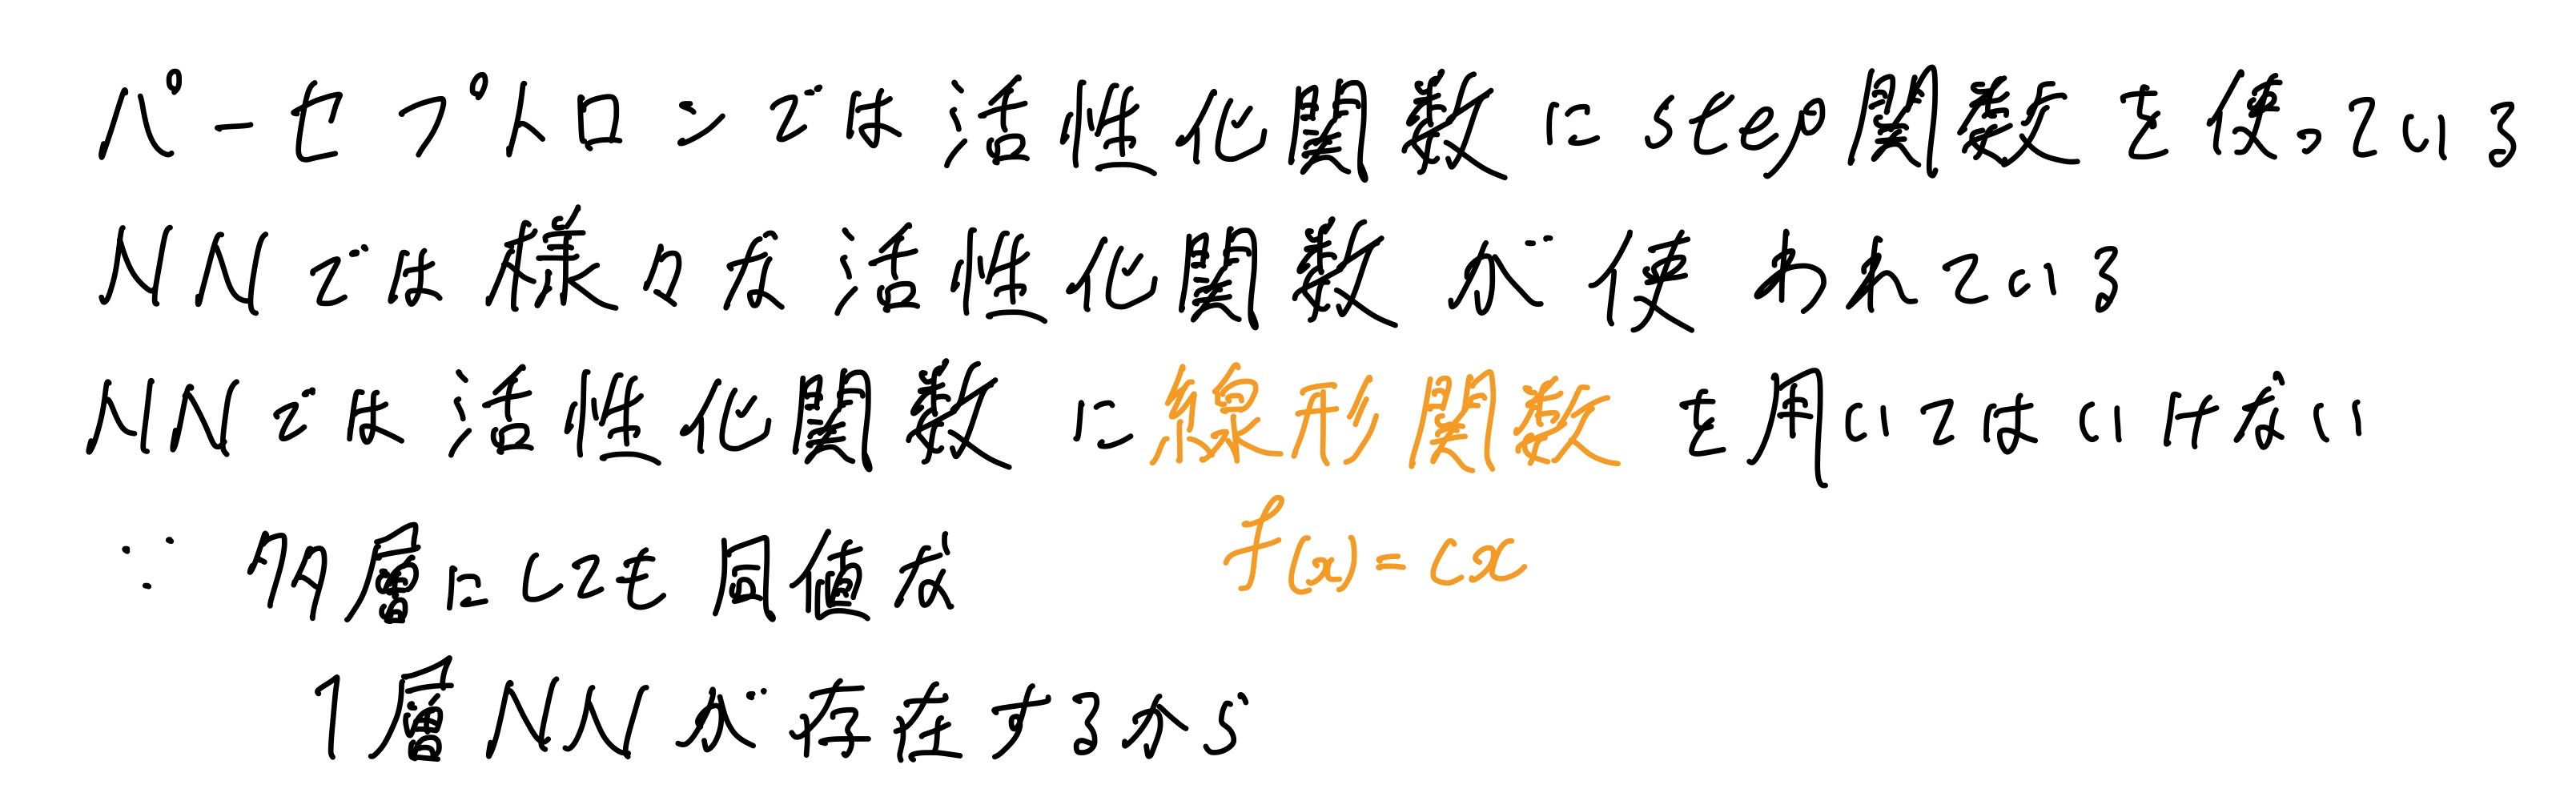 パーセプトロンでは活性化関数にstep関数を使っている
NNでは様々な活性化関数が使われている
NNでは活性化関数に線形関数を用いてはいけない
f(x)=cx
∵ 多層にしても同値な
1層NNが存在するから